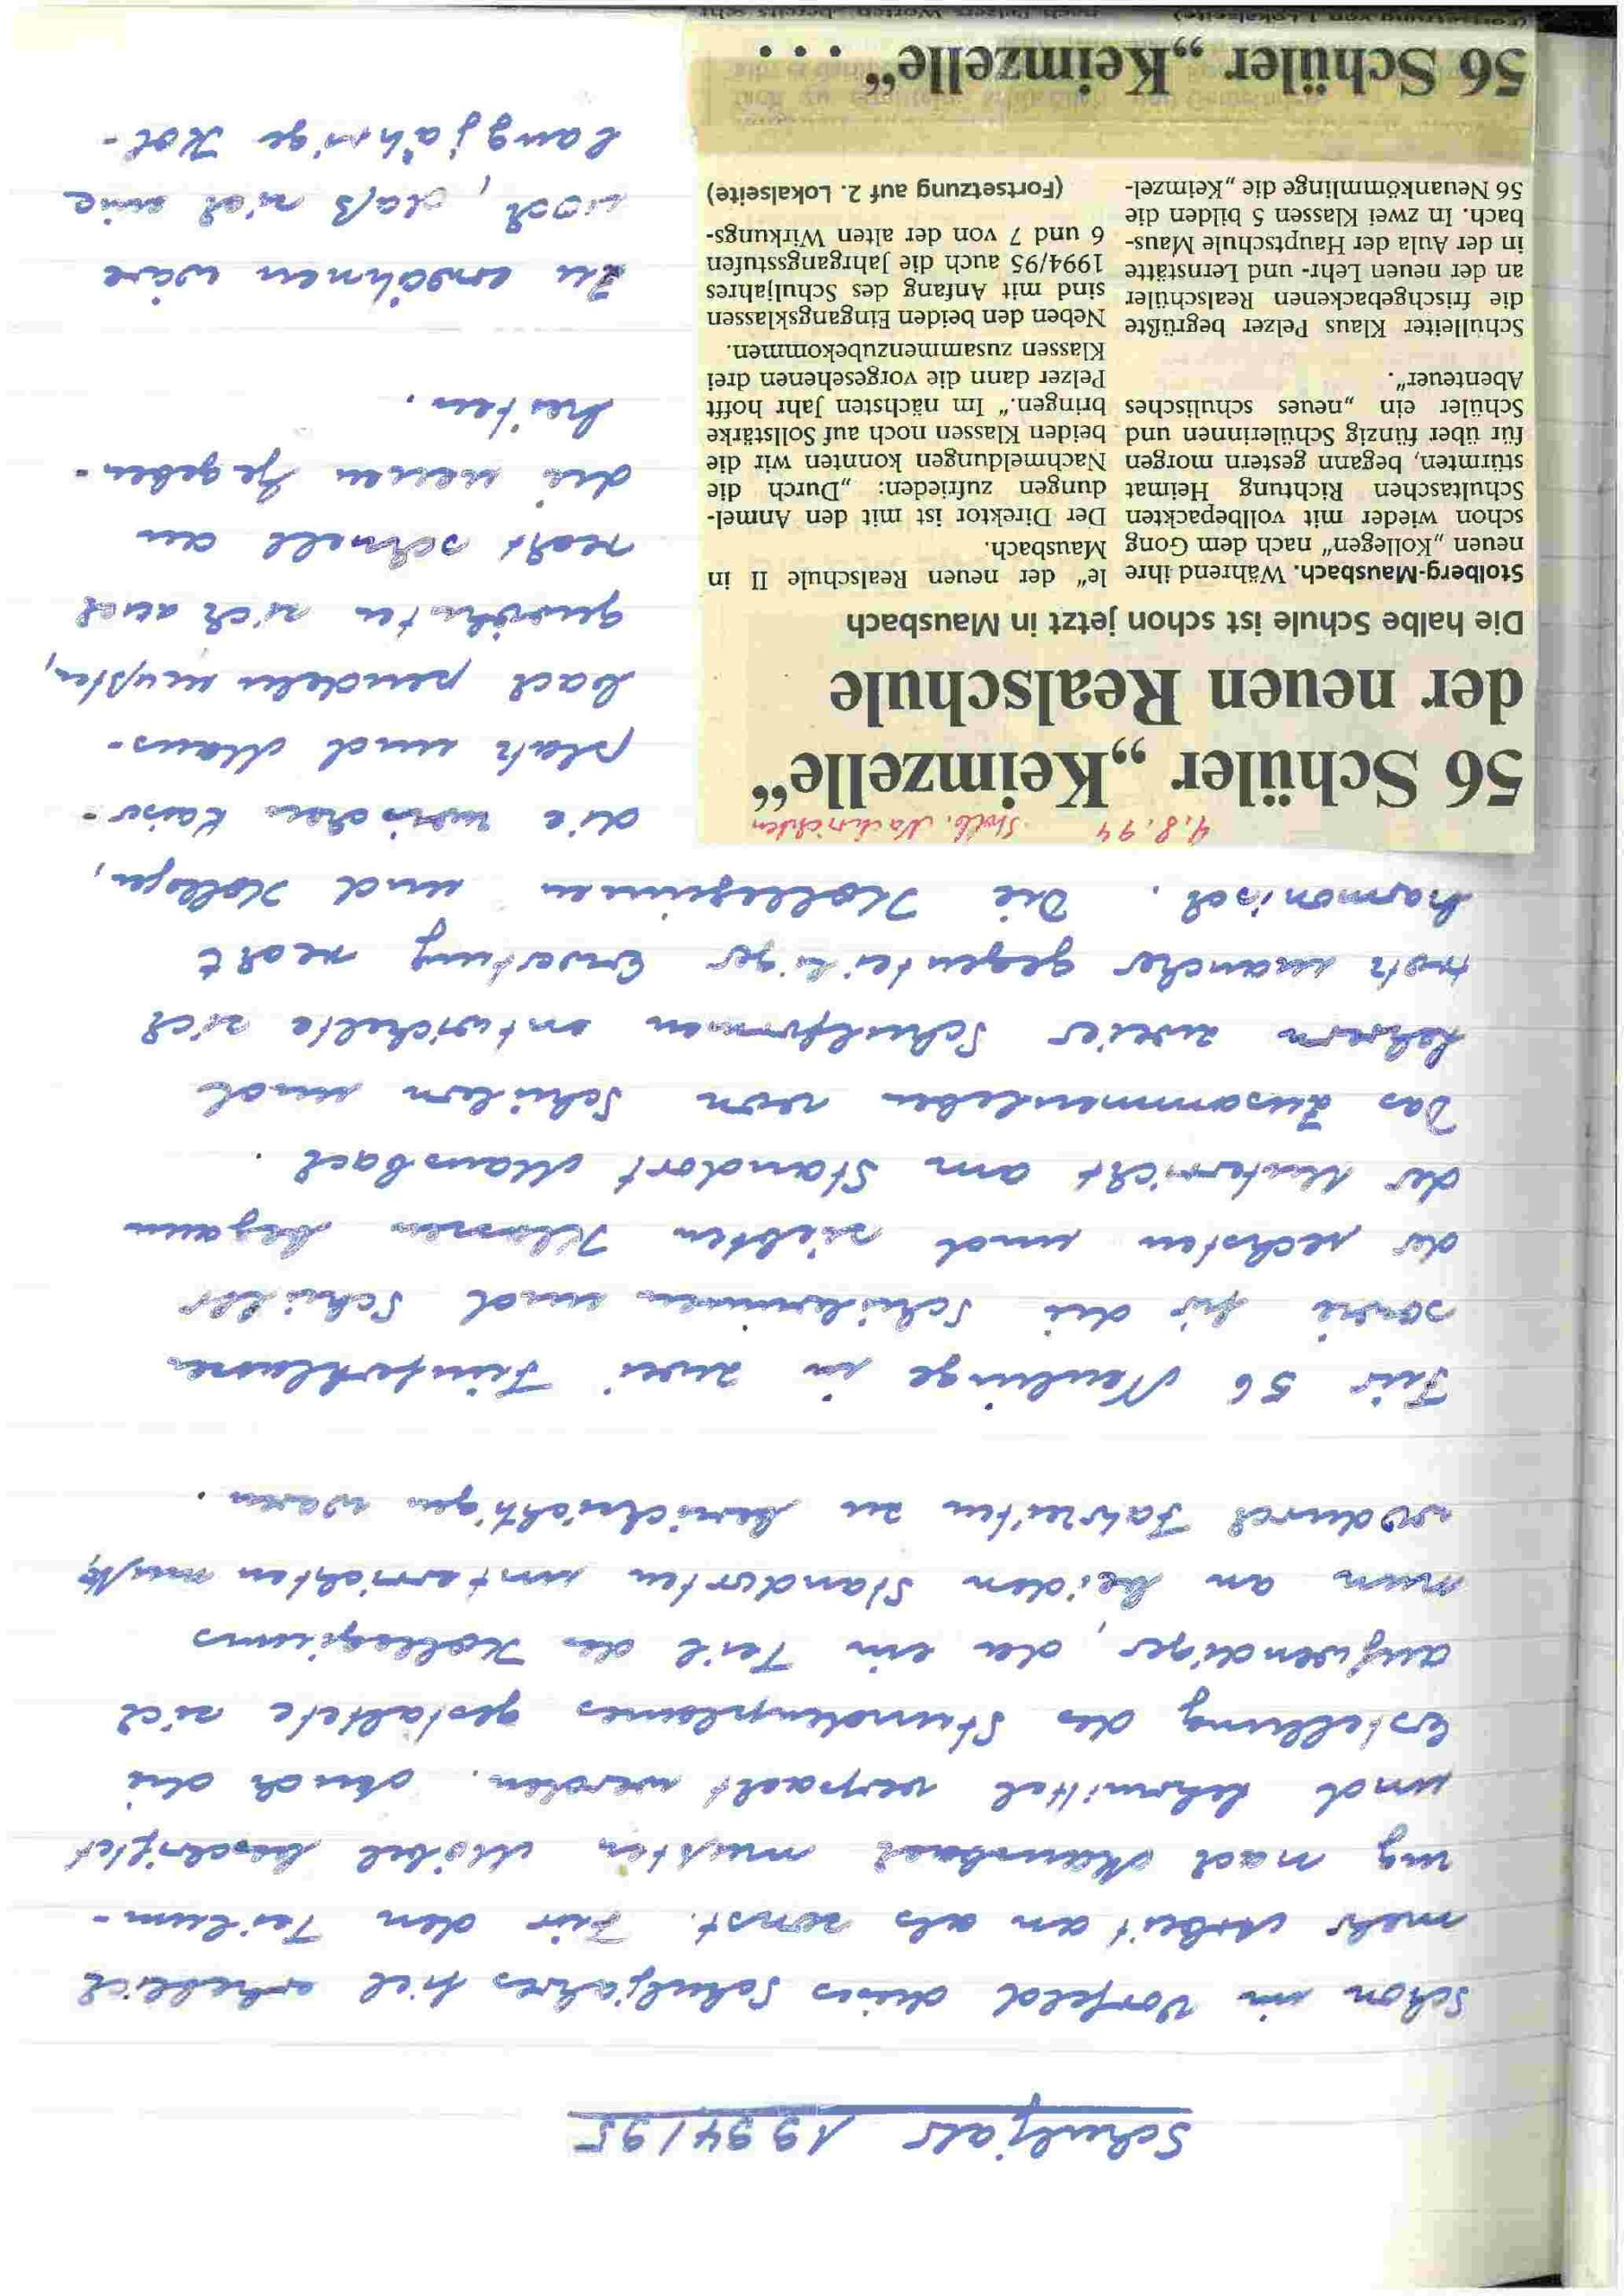 Schuljahr 1994/95
Schon im Vorfeld dieses Schuljahres fiel erheblich
mehr Arbeit an als sonst. Für den Teilum-
zug nach Mausbach mußten Möbel beschriftet
und Lehrmittel verpackt werden. Auch die
Erstellung des Stundenplanes gestaltete sich
aufwendiger, da ein Teil des Kollegiums
nun an beiden Standorten unterrichten mußte,
wodurch Fahrzeiten zu berücksichtigen waren.
Für 56 Neulinge in zwei Fünferklassen
sowie für die Schülerinnen und Schüler
der sechsten und siebten Klassen begann
der Unterricht am Standort Mausbach.
Das Zusammenleben von Schülern und
Lehrern zweier Schulformen entwickelte sich
trotz mancher gegenteiliger Erwartung recht
harmonisch. Die Kolleginnen und Kollegen,
die zwischen Kaiser-
platz und Maus-
bach pendeln mußten,
gewöhnten sich auch
recht schnell an
die neuen Gegeben-
heiten.
Zu erwähnen wäre
noch, daß sich eine
langjährige Kol-
4.8.94 Stolb. Nachrichten
56 Schüler „Keimzelle“
der neuen Realschule
Die halbe Schule ist schon jetzt in Mausbach
Stolberg-Mausbach. Während ihre
neuen „Kollegen“ nach dem Gong
schon wieder mit vollbepackten
Schultaschen Richtung Heimat
stürmten, begann gestern morgen
für über fünzig Schülerinnen und
Schüler ein „neues schulisches
Abenteuer“.
Schulleiter Klaus Pelzer begrüßte
die frischgebackenen Realschüler
an der neuen Lehr- und Lernstätte
in der Aula der Hauptschule Maus-
bach. In zwei Klassen 5 bilden die
56 Neuankömmlinge die „Keimzel-
le“ der neuen Realschule II in
Mausbach.
Der Direktor ist mit den Anmel-
dungen zufrieden: „Durch die
Nachmeldungen konnten wir die
beiden Klassen noch auf Sollstärke
bringen.“ Im nächsten Jahr hofft
Pelzer dann die vorgesehenen drei
Klassen zusammenzubekommen.
Neben den beiden Eingangsklassen
sind mit Anfang des Schuljahres
1994/95 auch die Jahrgangsstufen
6 und 7 von der alten Wirkungs-
(Fortsetzung auf 2. Lokalseite)
56 Schüler „Keimzelle“ . . .
(Fortsetzung von 1. Lokalseite)
nach Pelzers Worten „bereits sehr